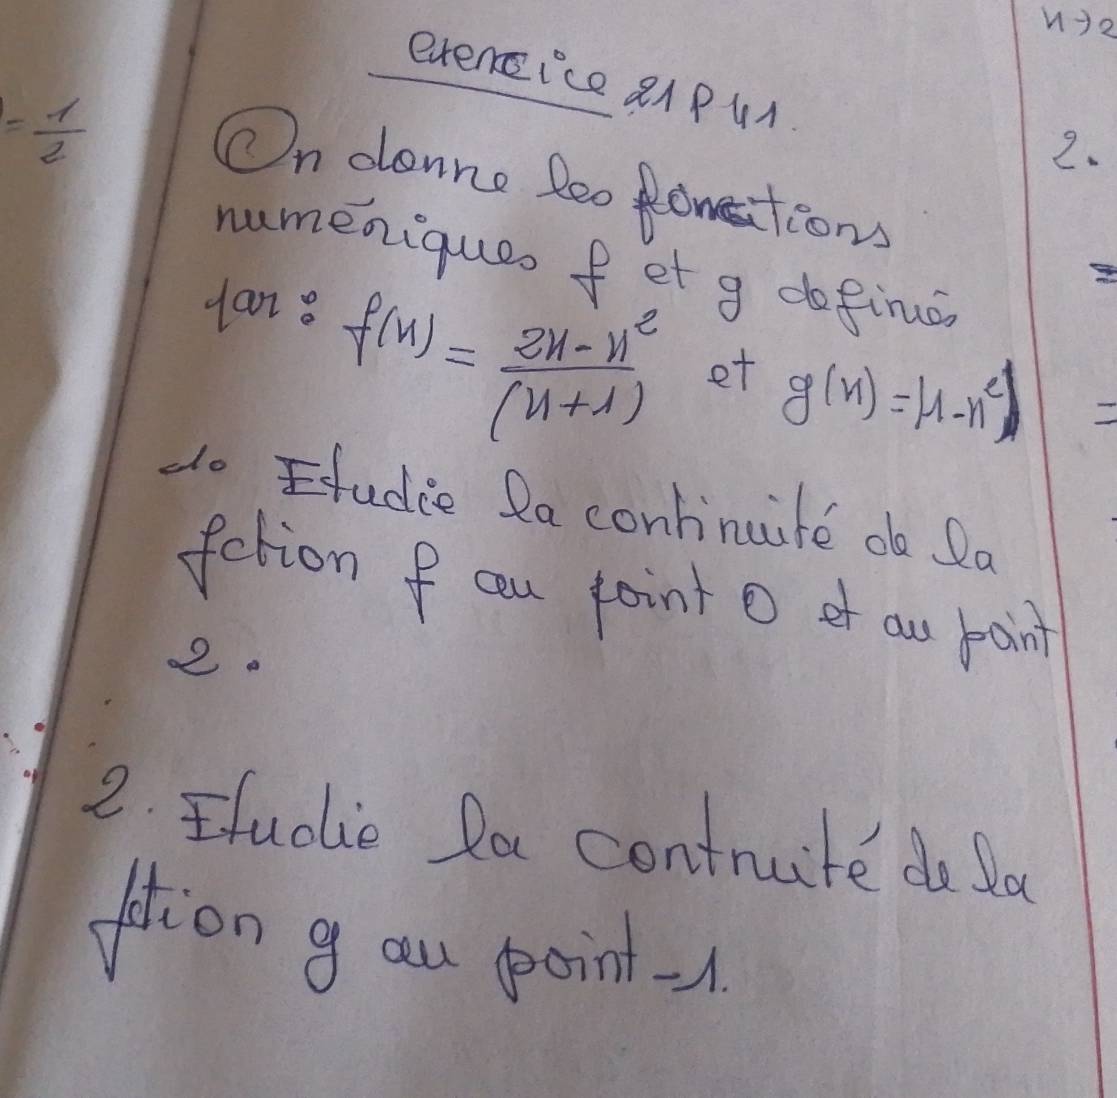 exercice 21 P 41.
On donne les fonctions
numériques f et g definiés
par : f(x) = (2x - x²)/(x+1) et g(x) = |1-x²|
1. Etudie la continuité de la
fction f au point 0 et au point
2.
2. Etudie la contnuité de la
fction g au point -1.
= 1/2
x→2
2.
=
=